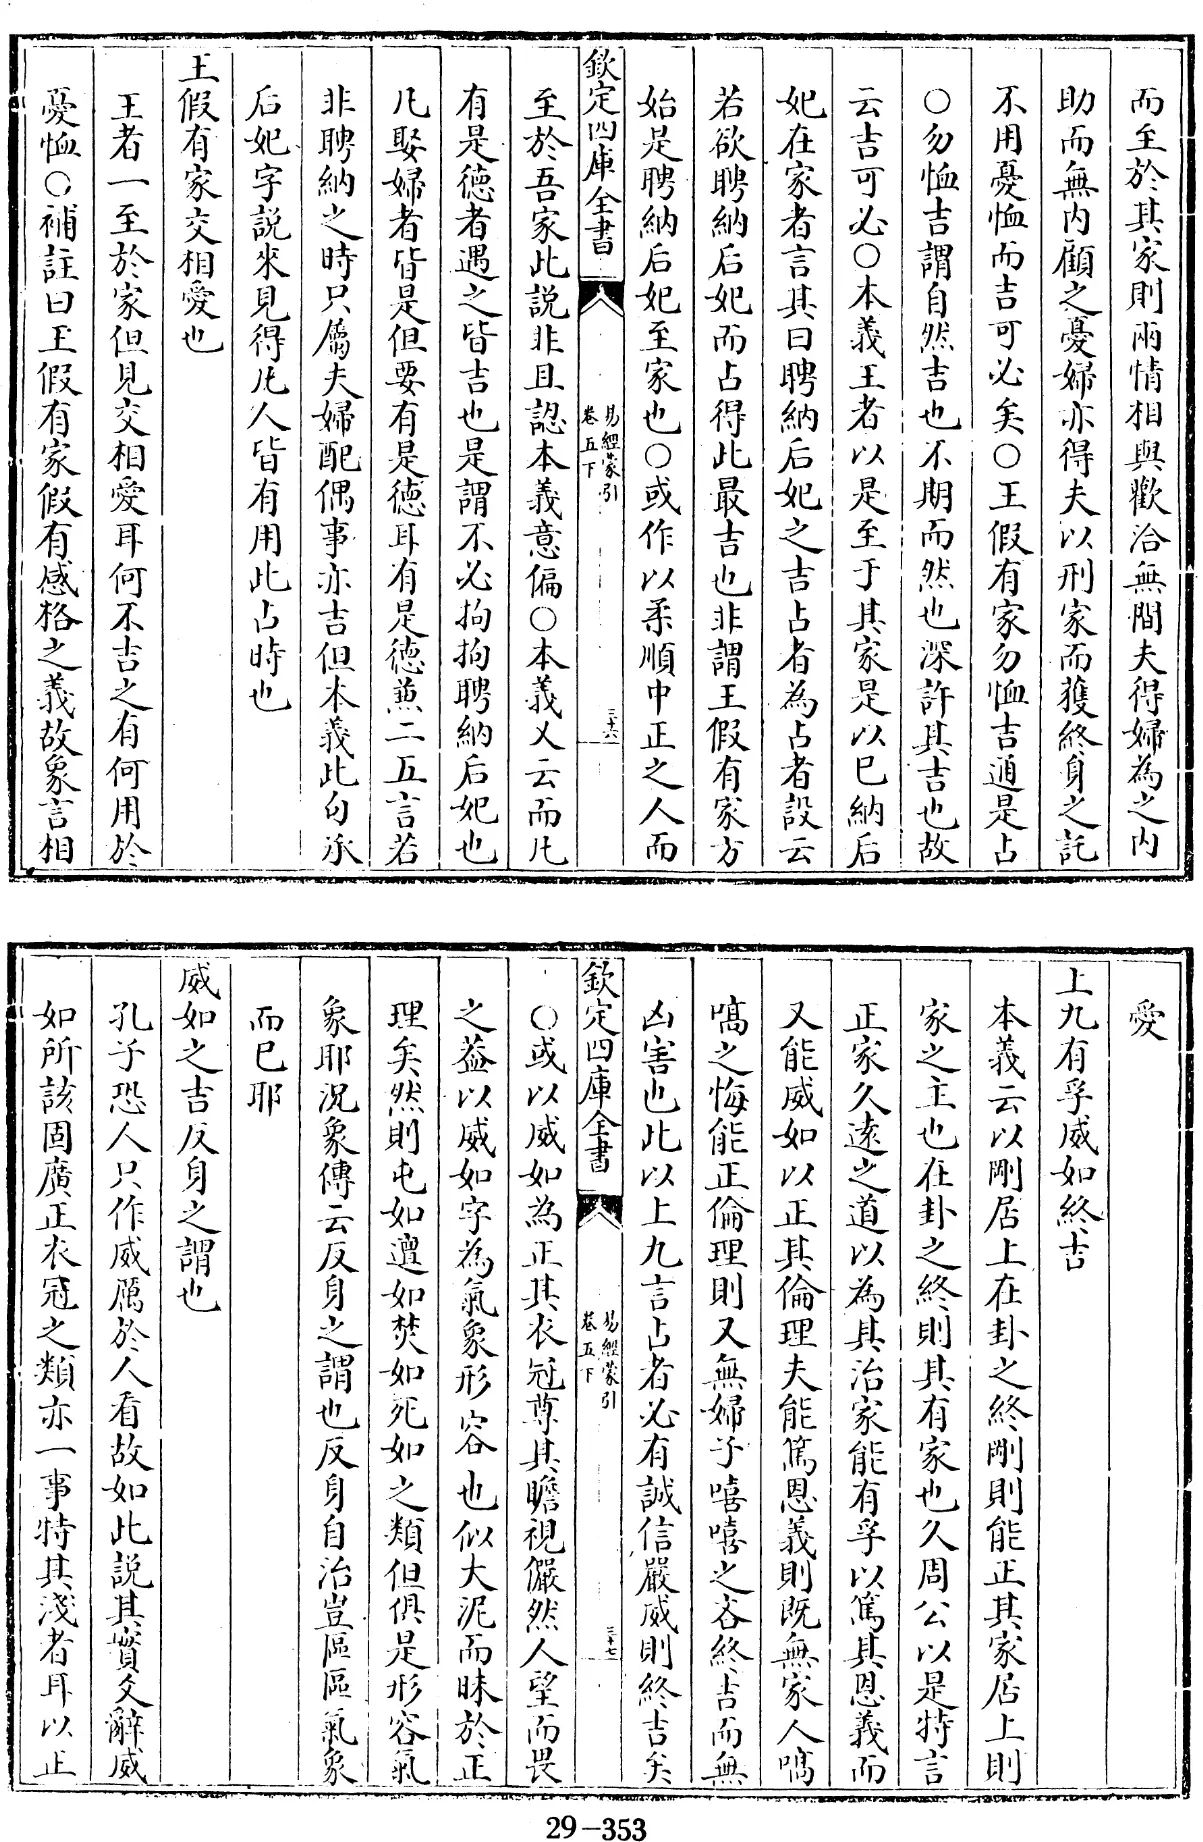 而至於其家則兩情相與歡洽無間夫得婦為之内
助而無内顧之憂婦亦得夫以刑家而獲終身之託
不用憂恤而吉可必矣○王假有家勿恤吉通是占
○勿恤吉謂自然吉也不期而然也深許其吉也故
云吉可必○本義王者以是至于其家是以已納后
妃在家者言其曰聘納后妃之吉占者為占者設云
若欲聘納后妃而占得此最吉也非謂王假有家方
始是聘納后妃至家也○或作以柔順中正之人而
欽定四庫全書
易經蒙引
卷五下
三十六
至於吾家此説非且認本義意偏○本義又云而凡
有是德者遇之皆吉也是謂不必拘拘聘納后妃也
凡娶婦者皆是但要有是德耳有是德兼二五言若
非聘納之時只屬夫婦配偶事亦吉但本義此句承
后妃字説來見得凡人皆有用此占時也
王假有家交相愛也
王者一至於家但見交相愛耳何不吉之有何用於
憂恤○補註曰王假有家假有感格之義故象言相
愛
上九有孚威如終吉
本義云以剛居上在卦之終剛則能正其家居上則
家之主也在卦之終則其有家也久周公以是特言
正家久遠之道以為其治家能有孚以篤其恩義而
又能威如以正其倫理夫能篤恩義則既無家人嗃
嗃之悔能正倫理則又無婦子嘻嘻之吝終吉而無
凶害也此以上九言占者必有誠信嚴威則終吉矣
欽定四庫全書
易經蒙引
卷五下
三十七
○或以威如為正其衣冠尊其瞻視儼然人望而畏
之葢以威如字為氣象形容也似大泥而昧於正
理矣然則屯如邅如焚如死如之類但俱是形容氣
象耶況象傳云反身之謂也反身自治豈區區氣象
而已耶
威如之吉反身之謂也
孔子恐人只作威厲於人看故如此説其實爻辭威
如所該固廣正衣冠之類亦一事特其淺者耳以正
29-353